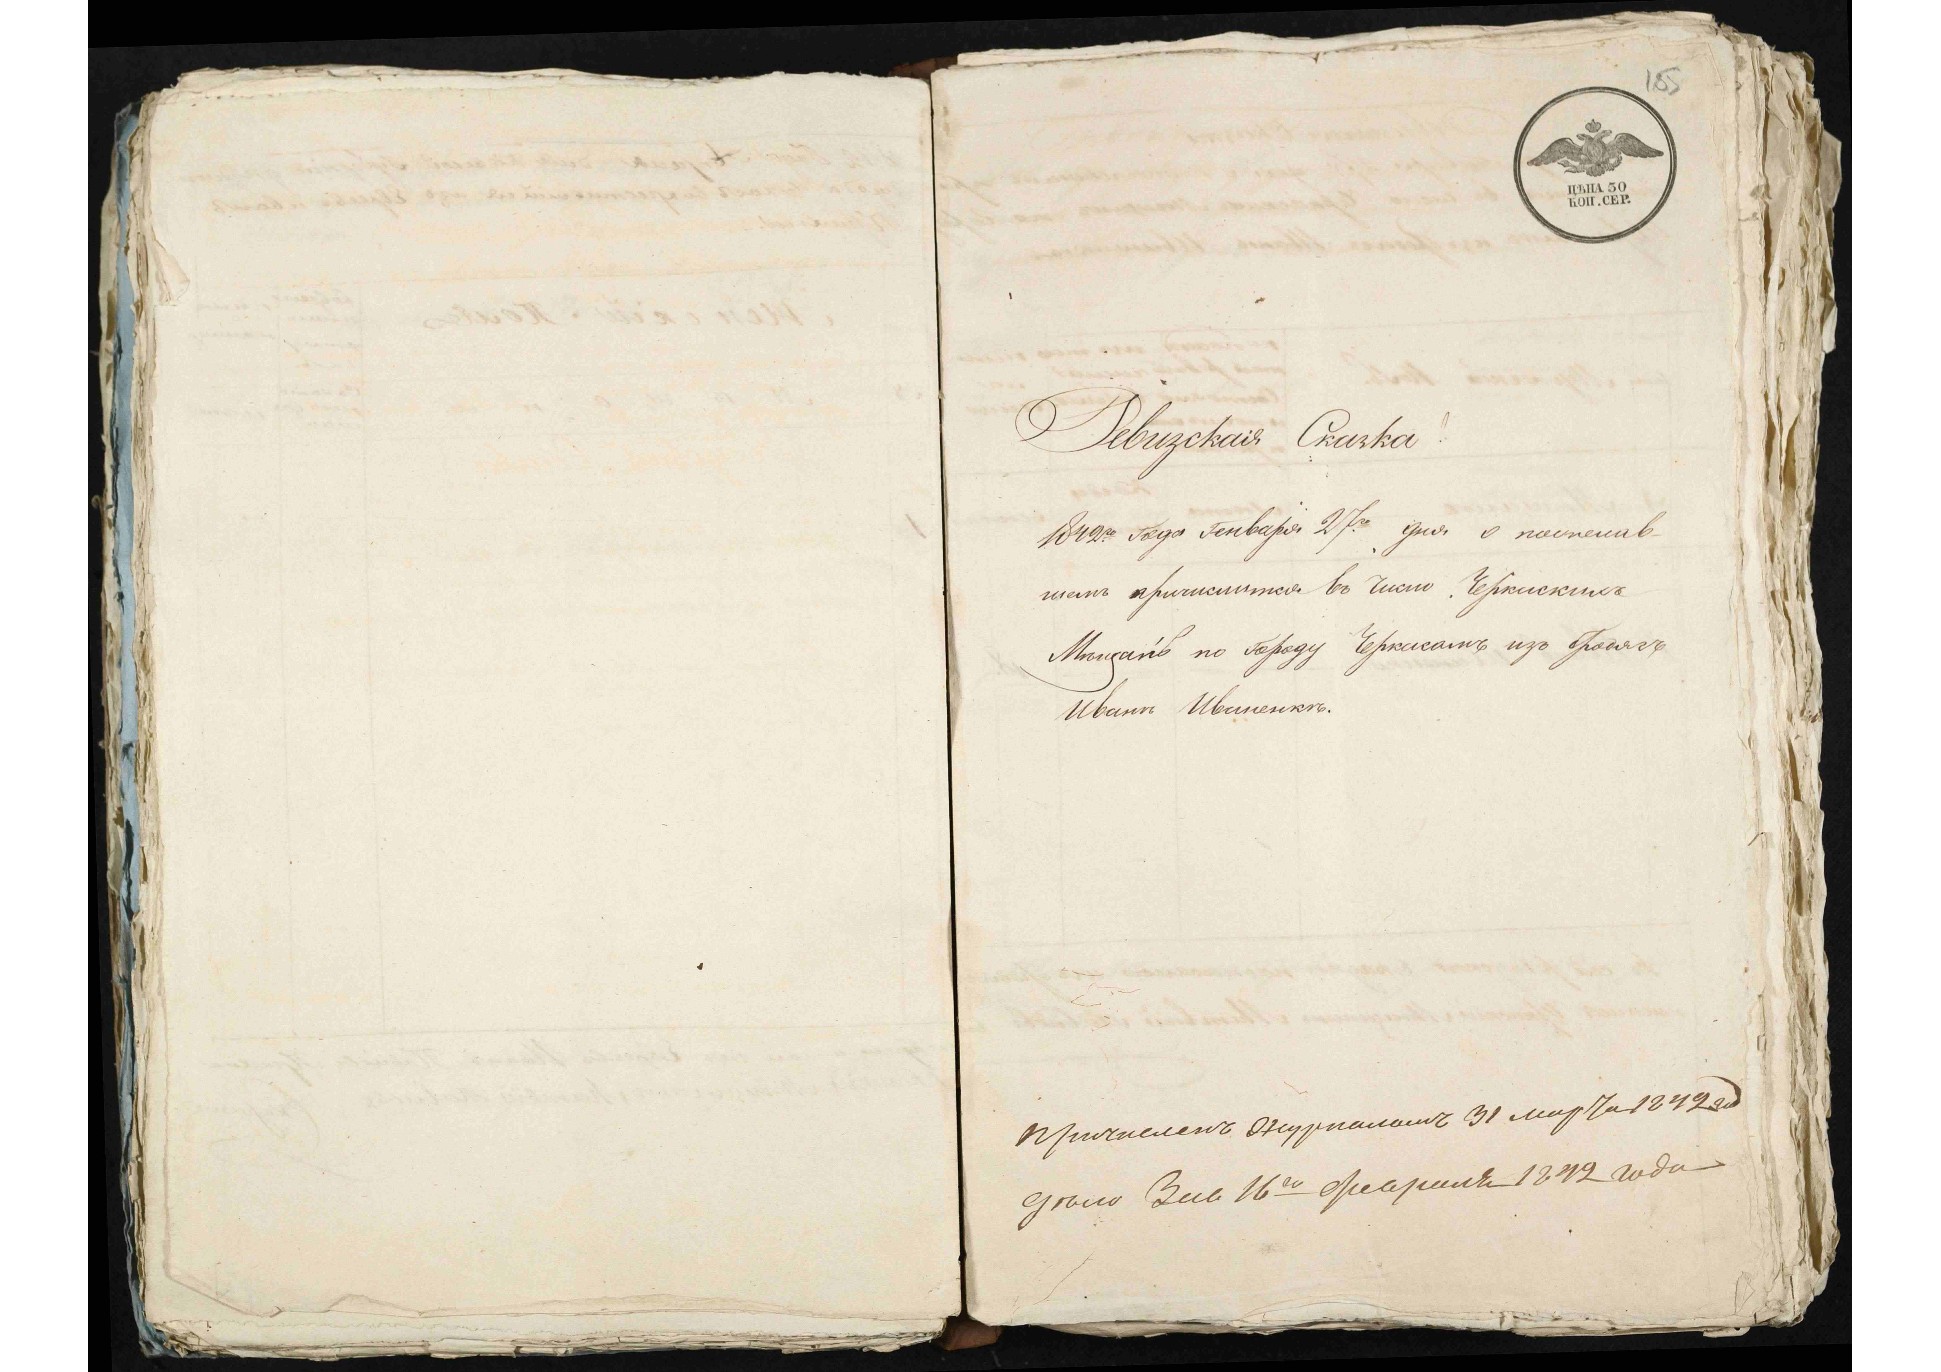 155
ЦѢНА 50
КОП. СЕР.
Ревизская Сказка
1842го Года Генваря 27го дня о пожелав-
шемъ причислится въ число Черкаскихъ
Мѣщанъ по Городу Черкасамъ изъ
Иванъ Иваненкѣ.
Причисленъ Журналомъ 31 марта 1842 го
Дѣло 16го февраля 1842 года